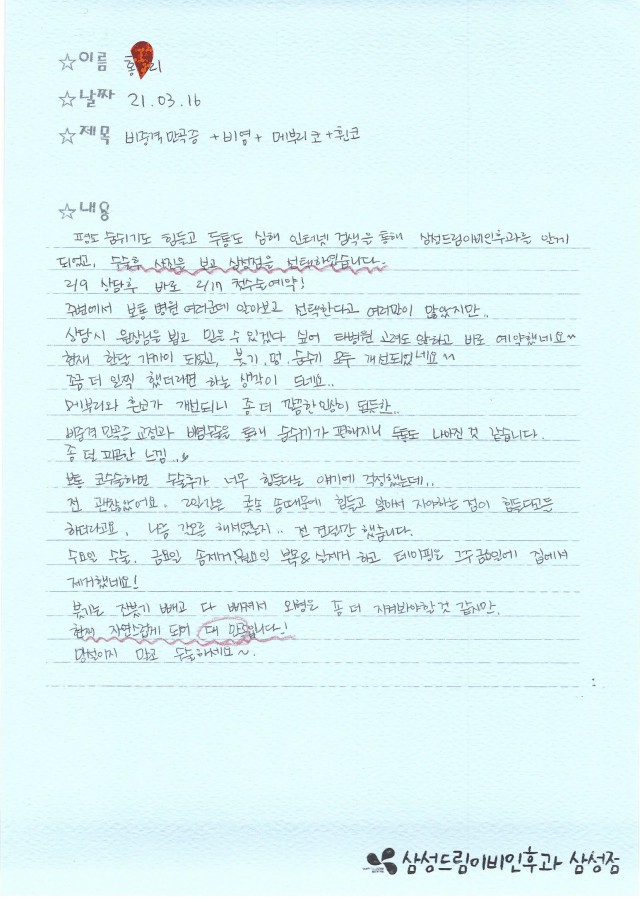 ☆이름 홍 리
☆날짜 21.03.16
☆제목 비중격 만곡증 + 비염 + 메부리코 + 휜코
☆내용
평도 숨쉬기도 힘들고 두통도 심해 인터넷 검색을 통해 삼성드림이비인후과를 알게
되었고, 수술후 사진을 보고 삼성점을 선택하였습니다.
2/9 상담후 바로 2/17 첫수술예약!
주변에서 보통 병원 여러군데 알아보고 선택한다고 여러말이 많았지만..
상담시 원장님을 뵙고 믿을 수 있겠다 싶어 타병원 고려도 않하고 바로 예약했네요~
현재 한달 가까이 되었고, 붓기, 멍, 숨쉬기 모두 개선되었네요~
조금 더 일찍 했더라면 하는 생각이 드네요..
메부리와 휜코가 개선되니 좀 더 깔끔한 인상이 된듯한..
비중격 만곡증 교정과 비염수술을 통해 숨쉬기가 편해지니 두통도 나아진 것 같습니다.
좀 덜 피곤한 느낌..
보통 코수술하면 수술후가 너무 힘든다는 얘기에 걱정했는데..
전 괜찮았어요. 2일간은 콧속 솜때문에 힘들고 앉아서 자야하는 점이 힘들다고들
하더라고요, 나름 각오를 해서였는지.. 전 견딜만 했습니다.
수요일 수술, 금요일 솜제거, 월요일 부목&실제거 하고 테이핑을 그주 금요일에 집에서
제거했네요!
붓기는 잔붓기 빼고 다 빠져서 외형은 좀 더 지켜봐야할 것 같지만,
현재 자연스럽게 되어 대 만족입니다!
망설이지 말고 수술하세요~.
삼성드림이비인후과 삼성점